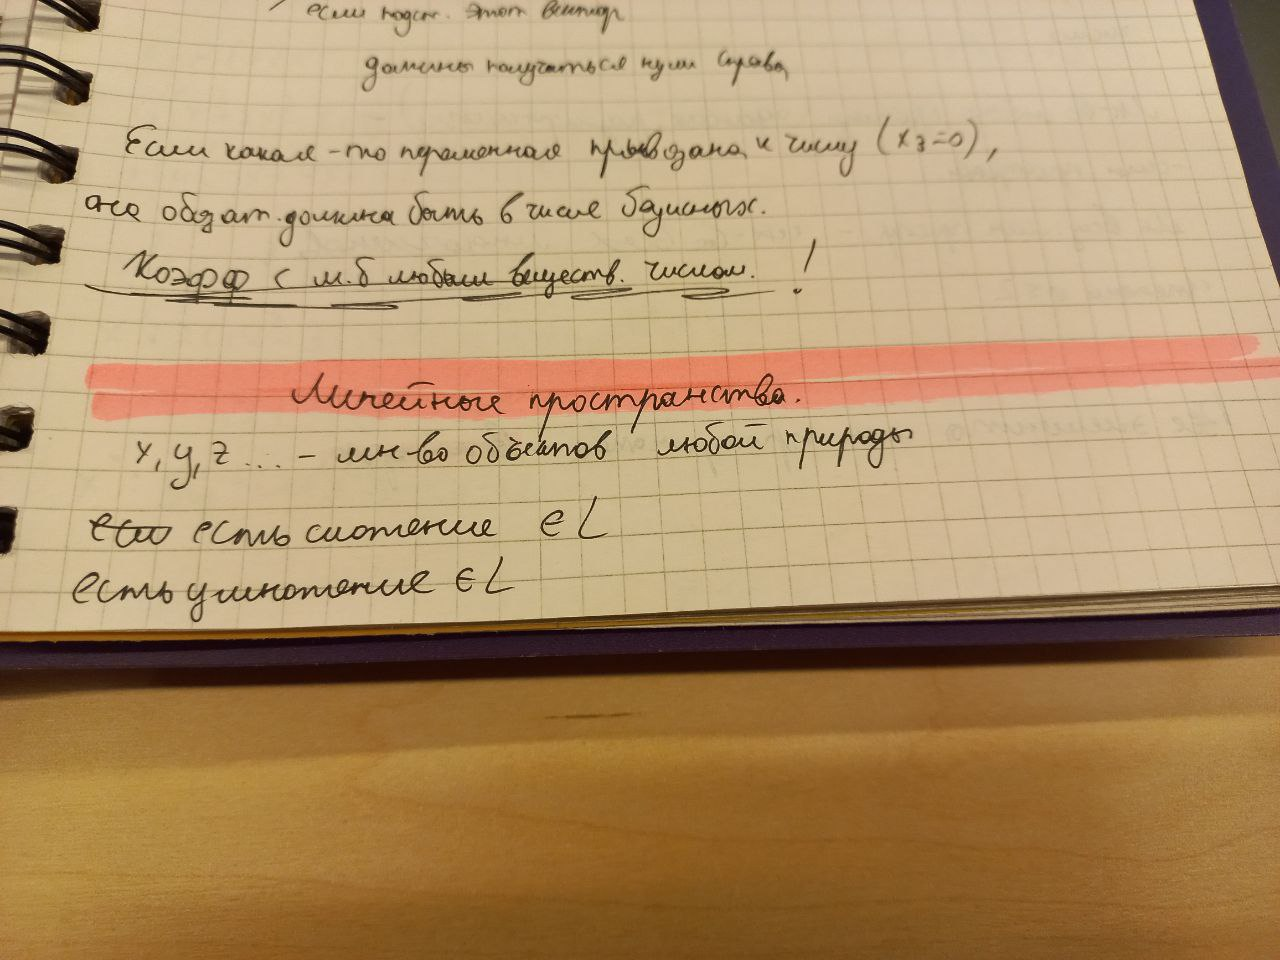 если подст. этот вектор
должны получаться нули справа
Если какая-то переменная привязана к числу (x₃=0),
она обязат. должна быть в числе базисных.
Коэфф С м.б любым веществ. числом. !
Линейные пространства.
x, y, z ... - мн-во объектов любой природы
если есть сложение ∈ L
есть умножение ∈ L